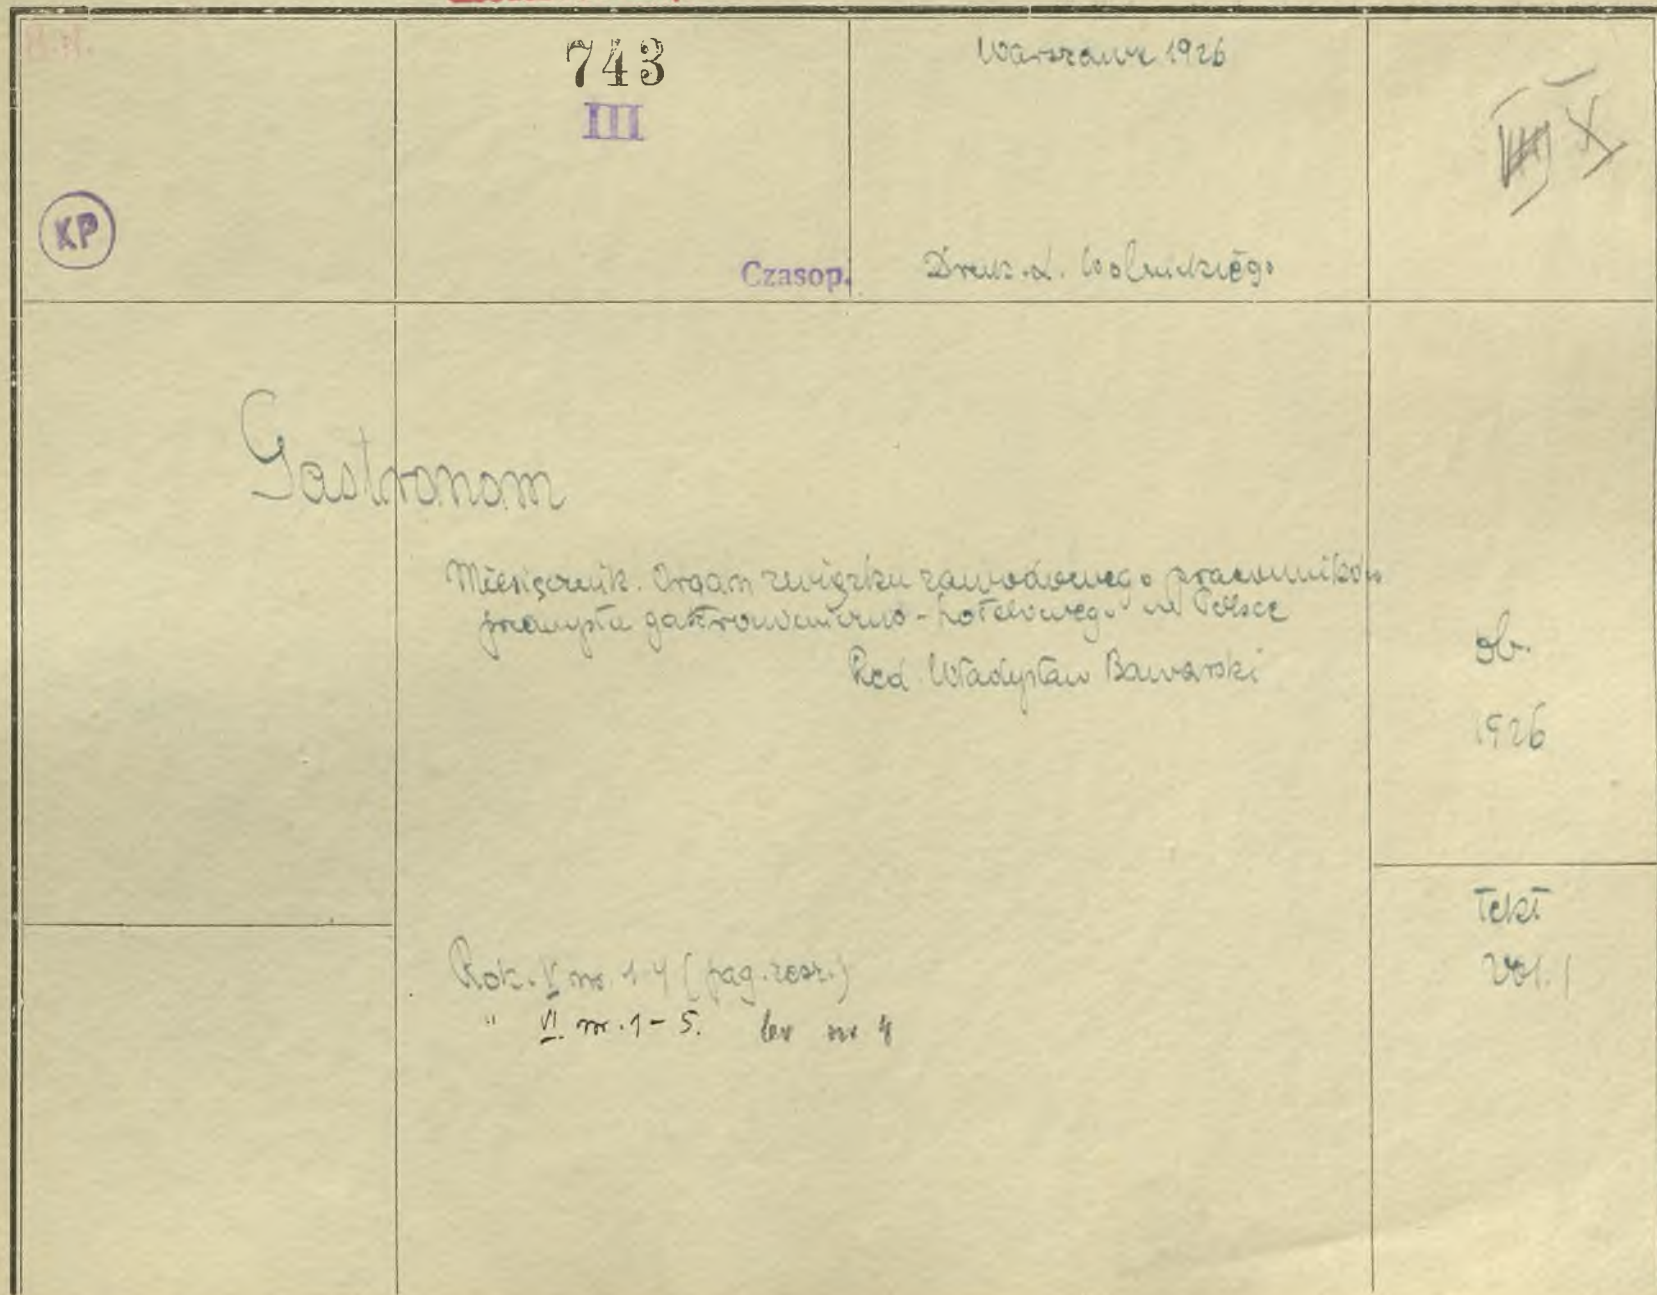 743
III
Warszawa 1926
X
KP
Czasop.
Druk. L. Wolnickiego
Gastronom
Miesięcznik. Organ związku zawodowego pracowników
przemysłu gastronomiczno-hotelowego w Polsce
Red. Władysław Bawarski
ob.
1926
Rok. V nr. 1-4 (pag. )
" VI nr. 1-5. nr 4
tekst
vol. 1